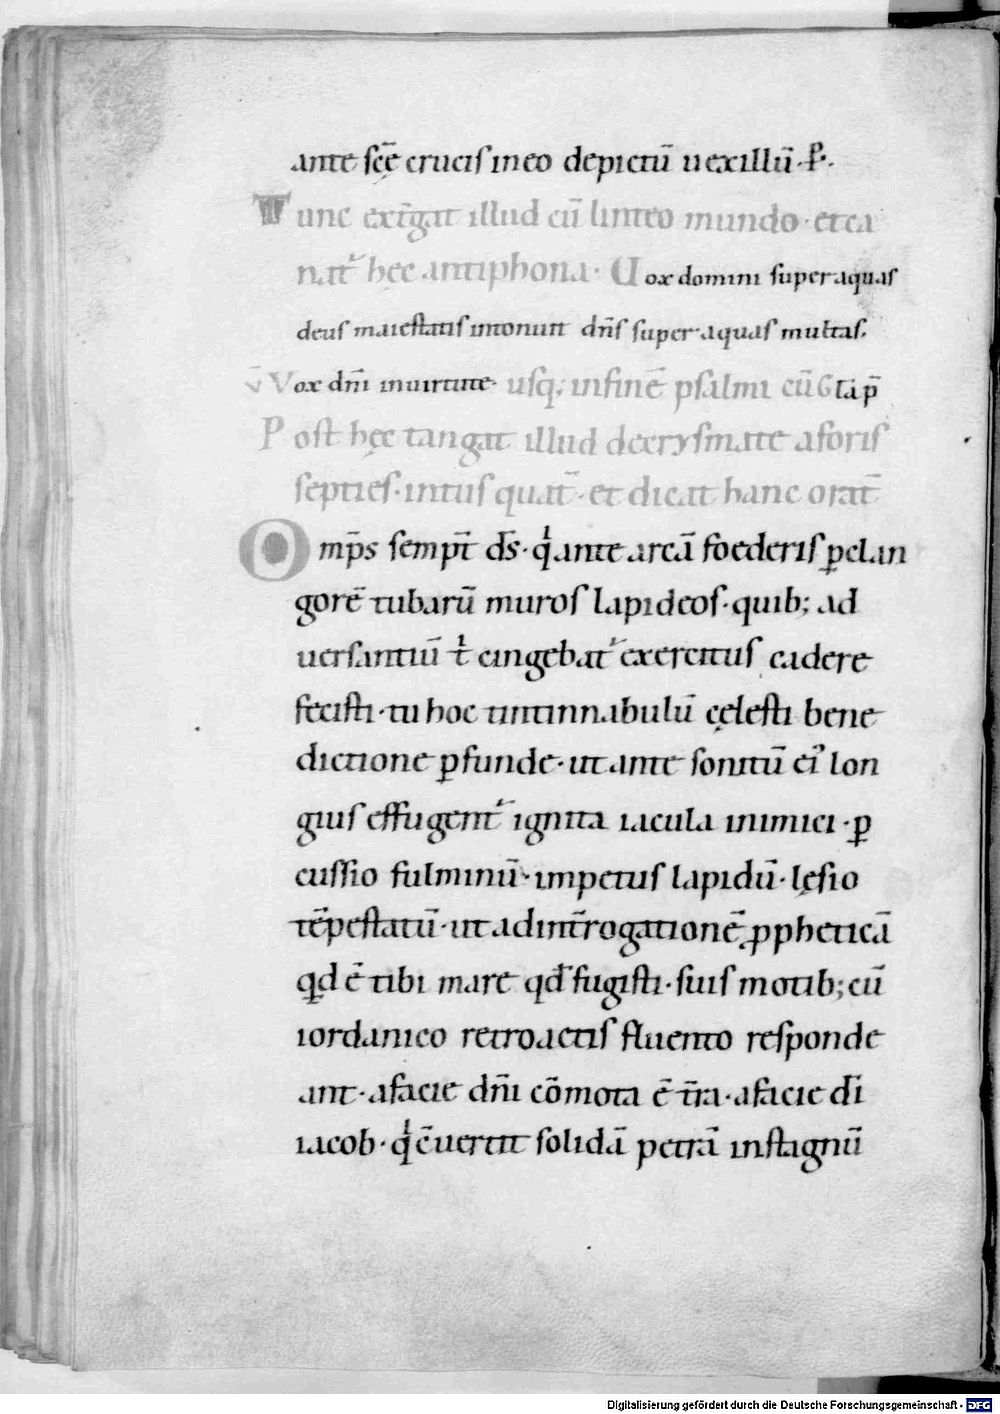 ante scē crucis in eo depictū uexillū · P̄ ·
Tunc exīgat illud cū linteo mundo · et ca
nat᷑ hęc antiphona · Uox domini super aquas
deus maiestatis intonuit dn̄s super aquas multas.
V̄ Vox dn̄i in uirtute · usq; in finē psalmi cū G͞ta p̄
Post hęc tangat illud de crysmate a foris
septies · intus quat̄ · et dicat hanc orat̄
Omp̄s semp̄t d̄s · qͥ ante arcā foederis ꝑ clan
gorē tubarū muros lapideos · quib; ad
uersantiū t̄ cingebat᷑ exercitus cadere
fecisti · tu hoc tintinnabulū cęlesti bene
dictione ꝑfunde · ut ante sonitū ei᷒ lon
gius effugent᷑ ignita iacula inimici · ꝑ
cussio fulminū · impetus lapidū · lęsio
tēpestatū · ut ad int̄rogationē ꝓpheticā
qd ē tibi mare qd̄ fugisti · suis motib; cū
iordanico retroactis fluento responde
ant · a facie dn̄i cōmota ē t̄ra · a facie d̄i
iacob · qͥ c̄uertit solidā petrā in stagnū
Digitalisierung gefördert durch die Deutsche Forschungsgemeinschaft - DFG